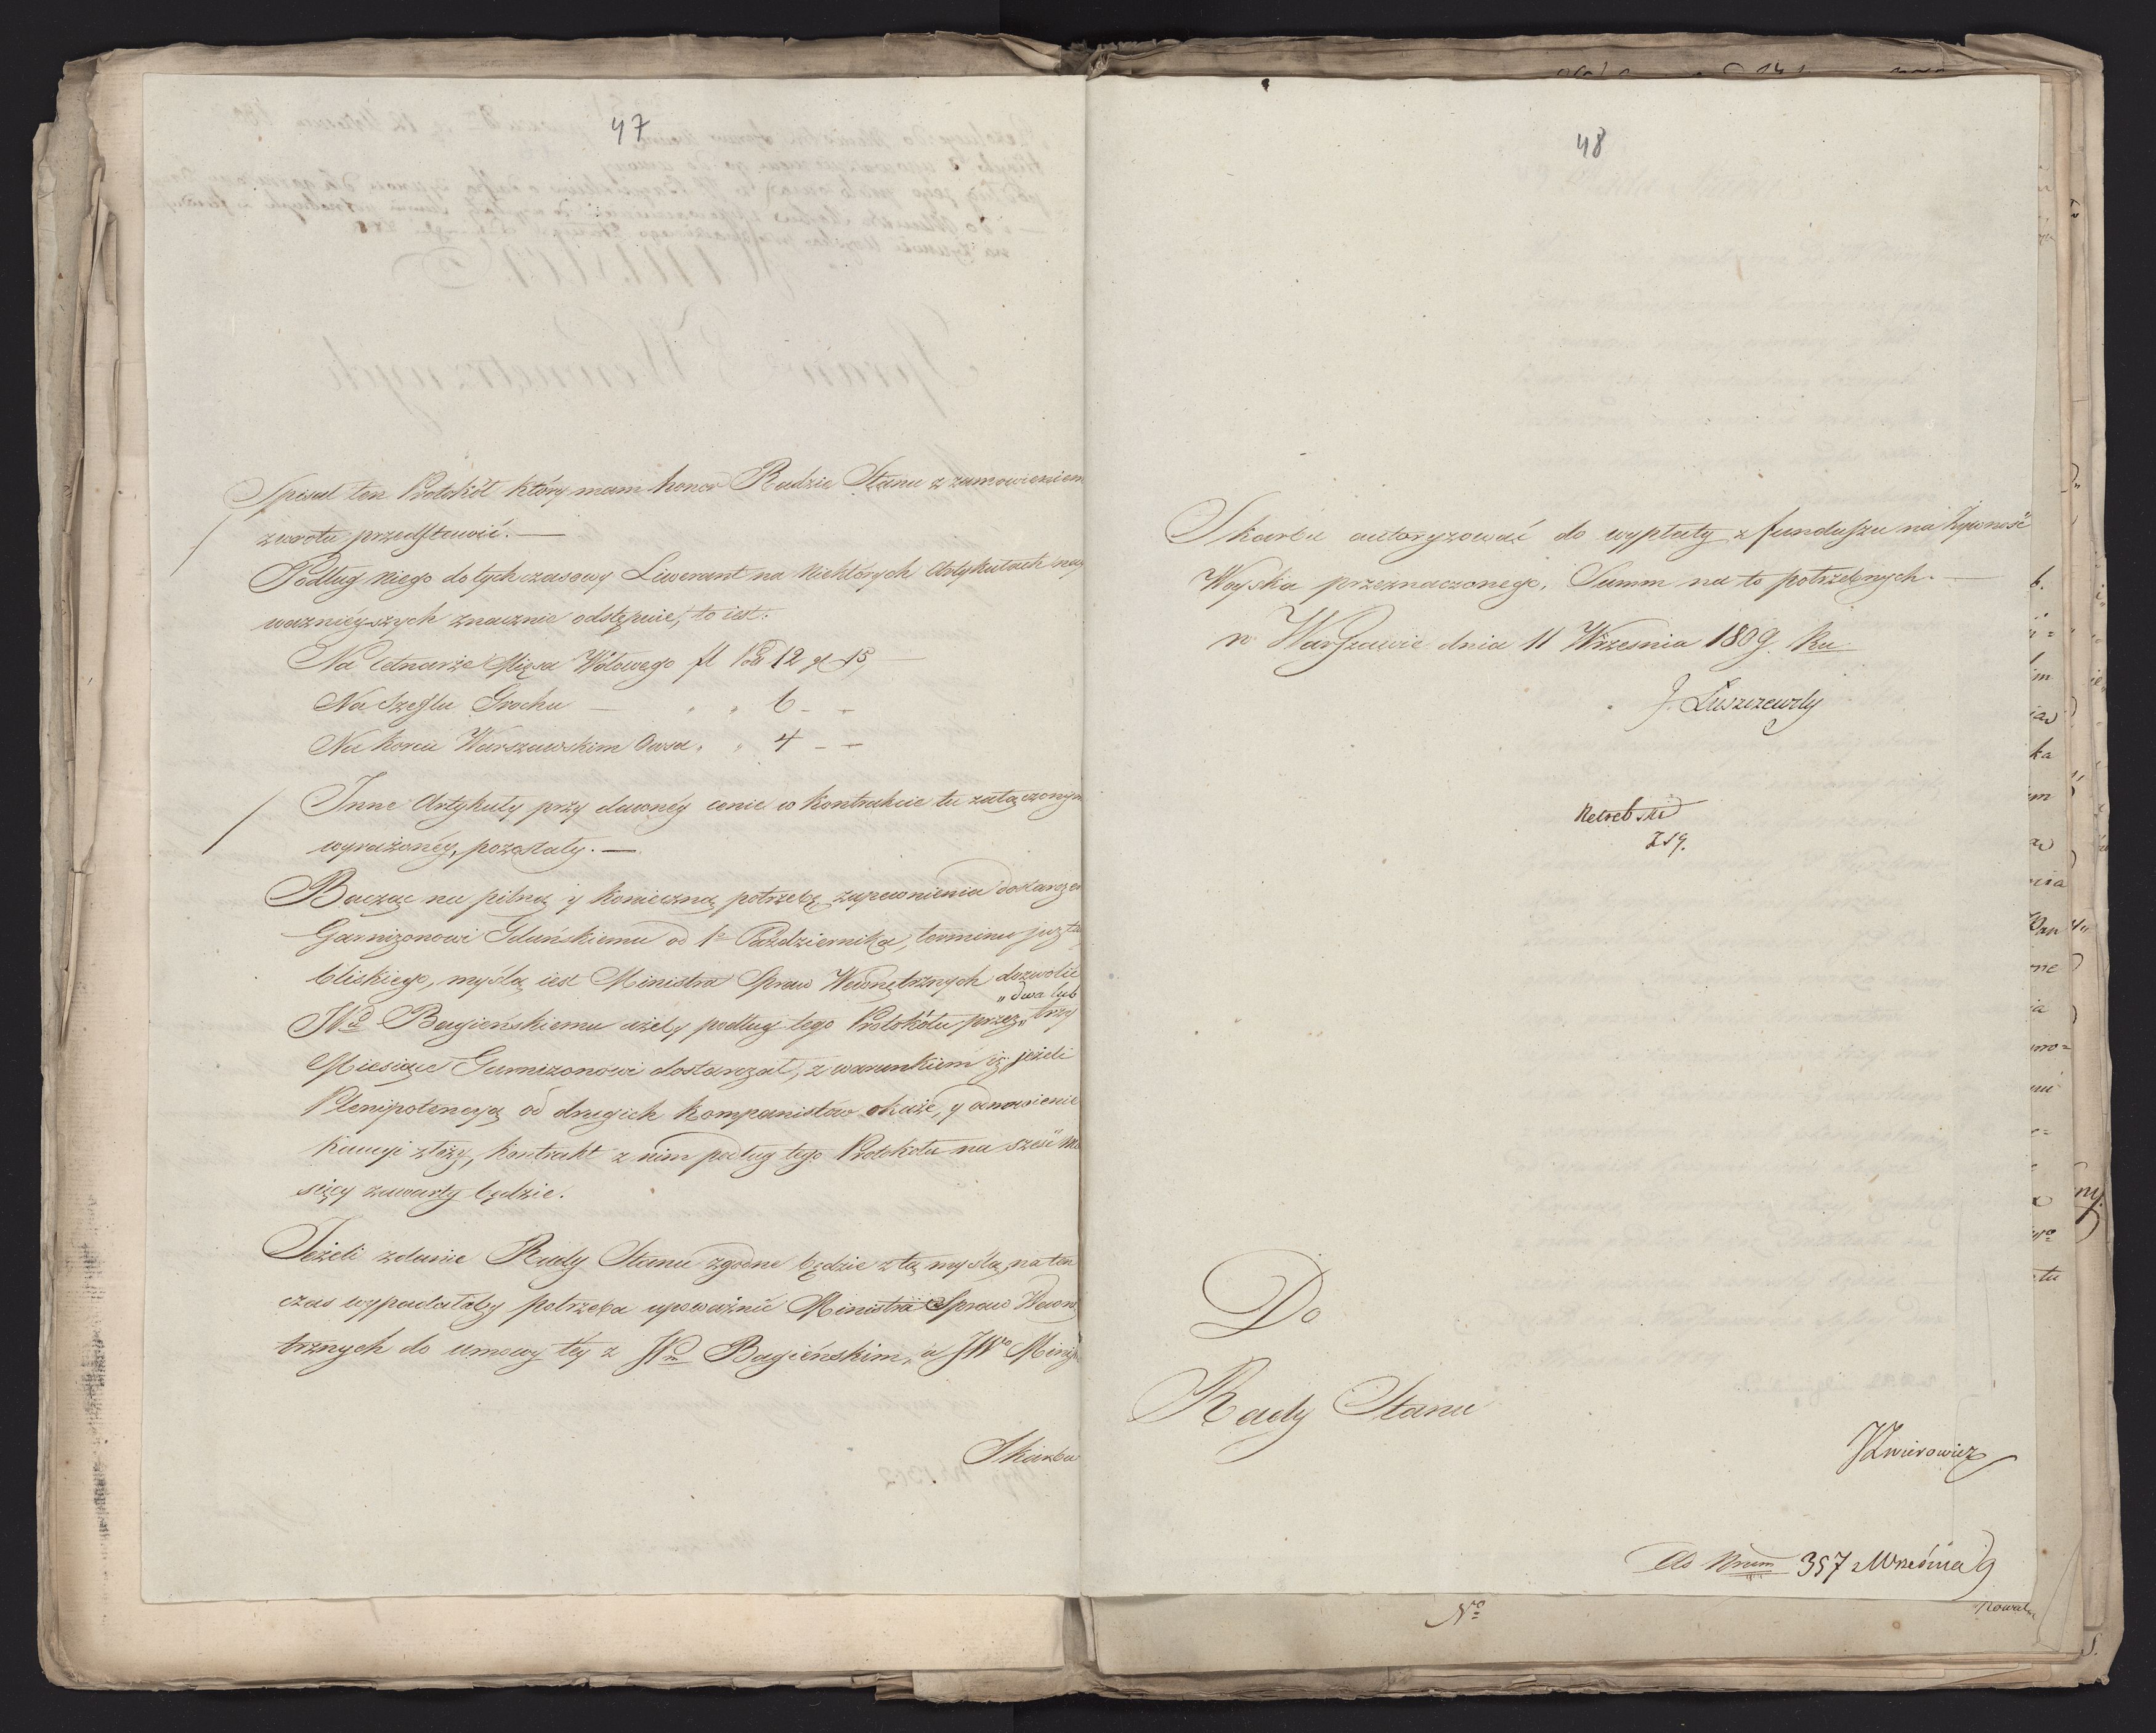 47
Spisał ten Protokół który mam honor Radzie Stanu z zamowieniem
zwrotu przedstawić. —
Podług niego dotychczasowy Liwerant na niektórych Artykułach nay
ważnieyszych znacznie odstępuie, to iest:
Na Cetnarze Mięsa Wołowego fl Pol 12 gl 15,
Na Szeflu Grochu — " " 6 - -
Na Korcu Warszawskim Owsa " " 4 - -
Inne Artykuły przy dawnéy cenie w Kontrakcie tu załączonym
wyrażonéy, pozostały. —
Bacząc na pilną y konieczną potrzebę zapewnienia dostarczeń
Garnizonowi Gdańskiemu od 1º Października, terminu już ta
bliskiego, myślą iest Ministra Spraw Wewnętrznych dozwolić
"dwa lub
Bagieńskiemu ażeby podług tego Protokółu przez "trzy
Miesiące Garnizonowi dostarczał, z warunkiem iż jeżeli
Plenipotencyą od drugich Kompanistów okaże, y odnowienie
Kaucyi złoży, Kontrakt z nim podług tego Protokołu na sześć Mie
sięcy zawarty będzie.
Jeżeli zdanie Rady Stanu zgodne będzie z tą myślą, na ten
czas wypadałaby potrzeba upoważnić Ministra Spraw Wewnę
trznych do umowy téy z Bagieńskim, a JWº Minist
Skarbu
48
Skarbu autoryzować do wypłaty z funduszu na Żywność
Woyska przeznaczonego, Summ na to potrzebnych. —
w Warszawie dnia 11 Września 1809. Ru
J. Łuszczewsky
Netrebski
ZSG.
Do
Rady Stanu
JKnierowicz
Ad Num 357 Września 9
Nº